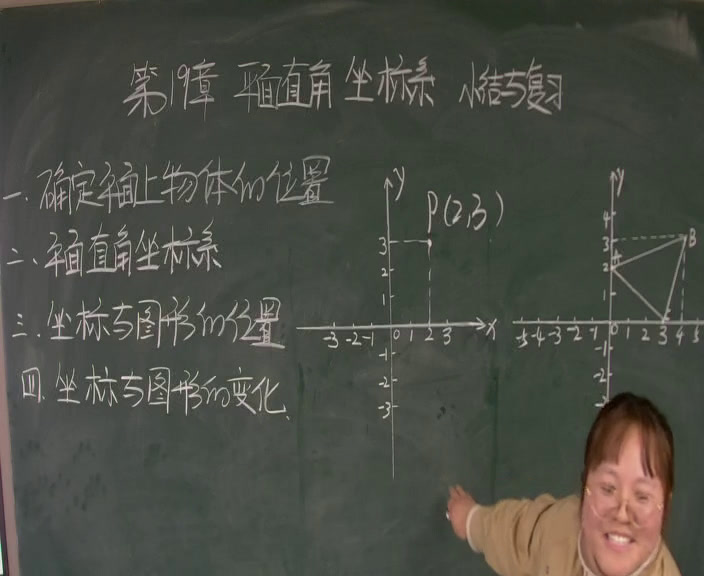 第19章 平面直角坐标系 小结与复习
一、确定平面上物体的位置
二、平面直角坐标系
三、坐标与图形的位置
四、坐标与图形的变化
y
P(2,3)
3
2
1
-3 -2 -1 0 1 2 3 x
-1
-2
-3
y
4
3 B
A
2
1
-5 -4 -3 -2 -1 0 1 2 3 4 5
-1
-2